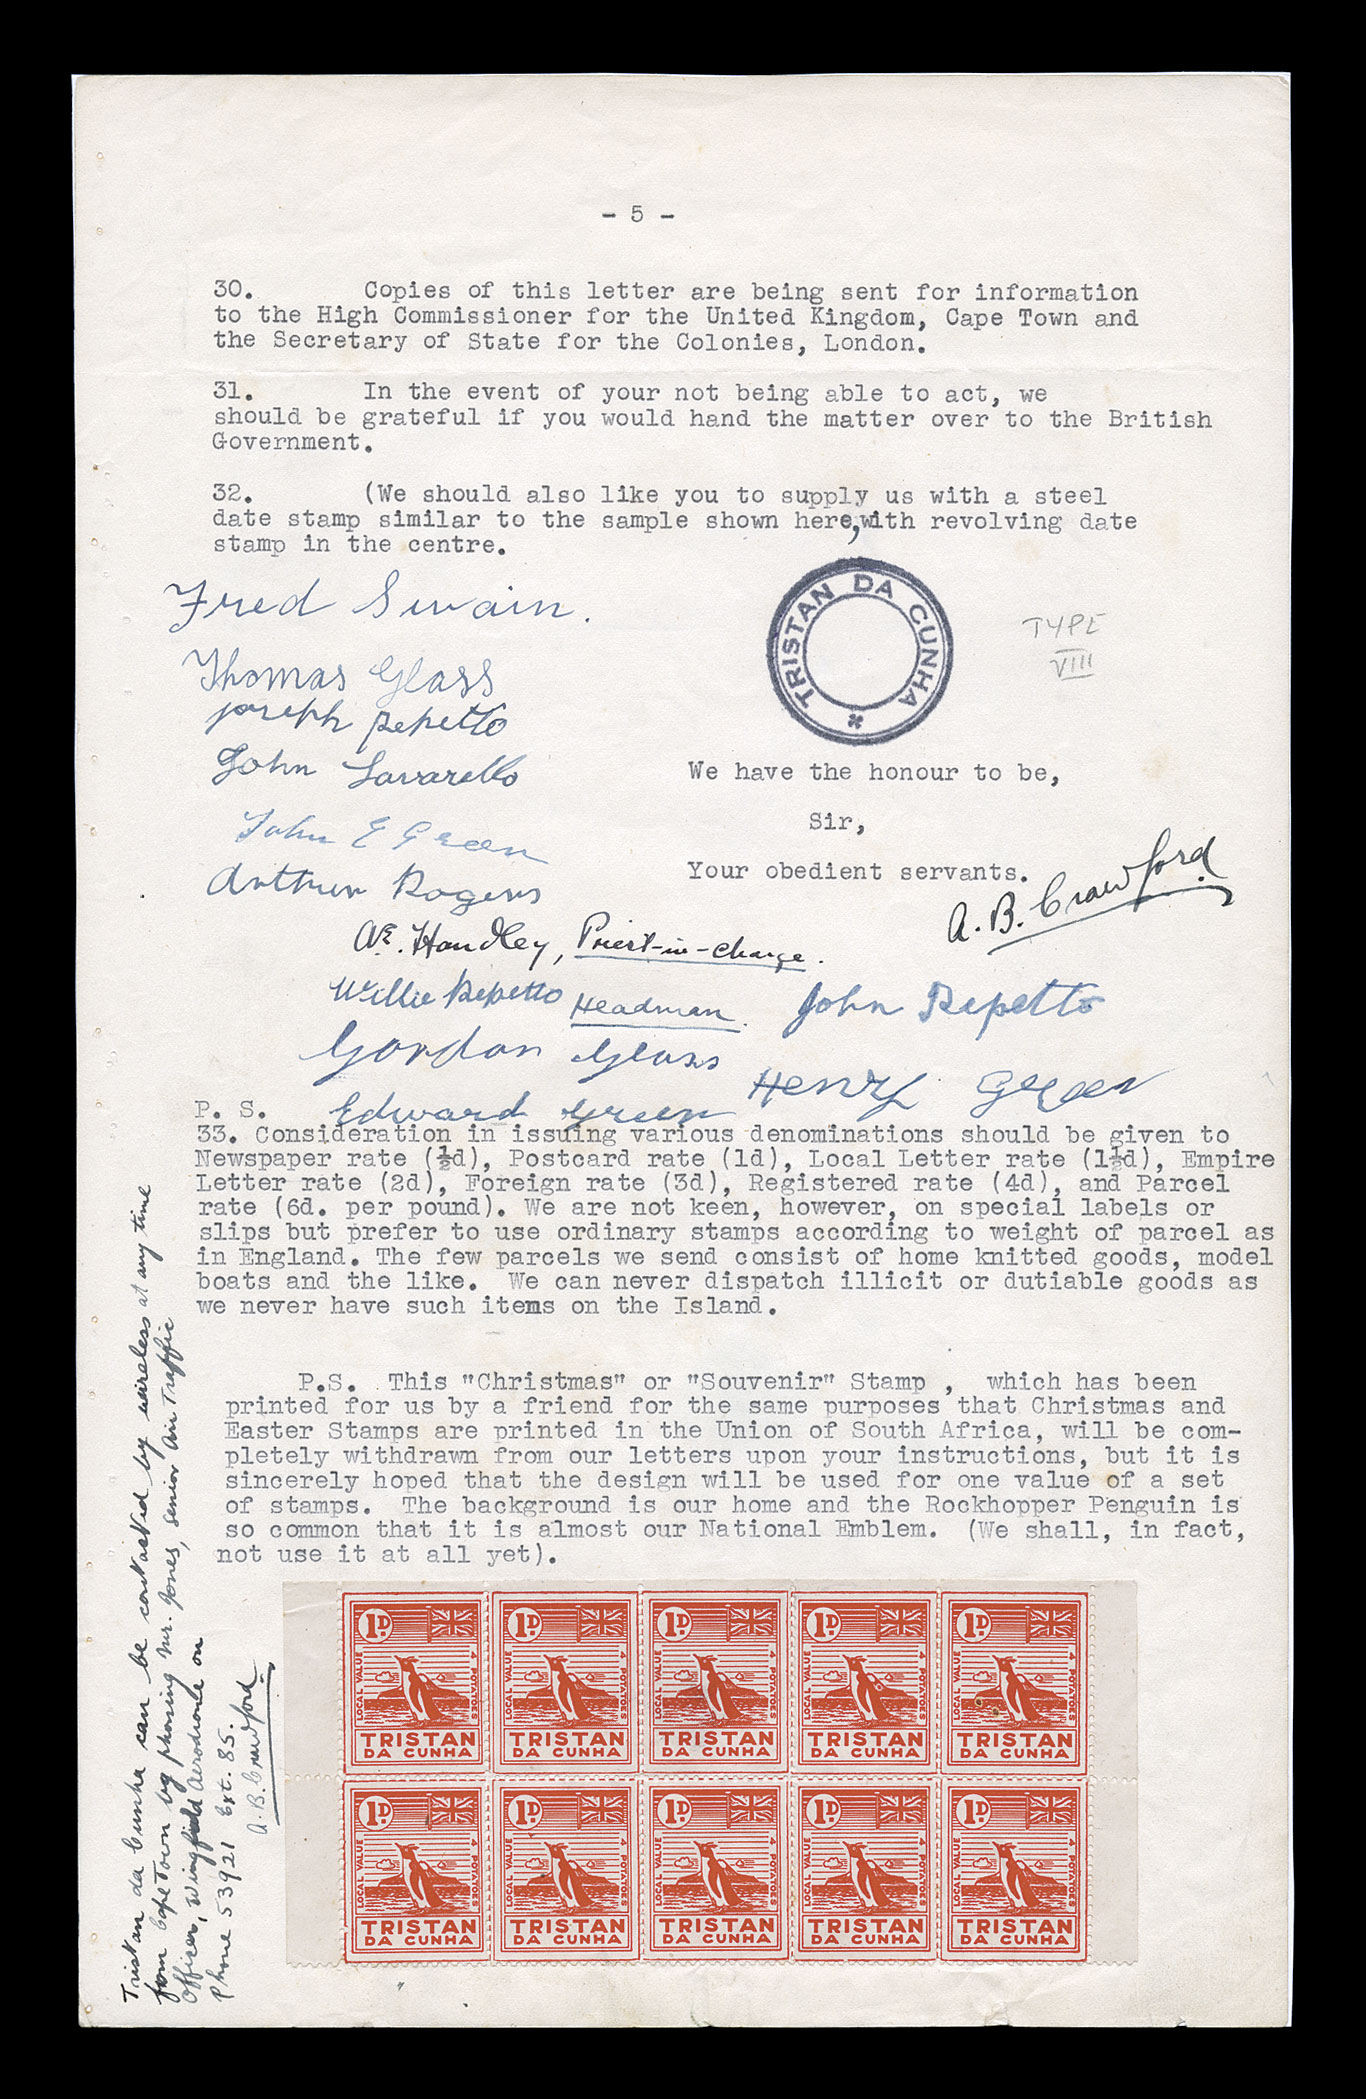 - 5 -
30. Copies of this letter are being sent for information
to the High Commissioner for the United Kingdom, Cape Town and
the Secretary of State for the Colonies, London.
31. In the event of your not being able to act, we
should be grateful if you would hand the matter over to the British
Government.
32. (We should also like you to supply us with a steel
date stamp similar to the sample shown here, with revolving date
stamp in the centre.
TRISTAN DA CUNHA
TYPE
VIII
Fred Swain.
Thomas Glass
Joseph Repetto
John Lavarello
John E Green
Arthur Rogers
We have the honour to be,
Sir,
Your obedient servants.
A. B. Crawford
A.E. Handley, Priest-in-charge.
Willie Repetto Headman. John Repetto
Gordon Glass
Henry Green
Edward Green
P. S.
33. Consideration in issuing various denominations should be given to
Newspaper rate (½d), Postcard rate (1d), Local Letter rate (1½d), Empire
Letter rate (2d), Foreign rate (3d), Registered rate (4d), and Parcel
rate (6d. per pound). We are not keen, however, on special labels or
slips but prefer to use ordinary stamps according to weight of parcel as
in England. The few parcels we send consist of home knitted goods, model
boats and the like. We can never dispatch illicit or dutiable goods as
we never have such items on the Island.
P.S. This "Christmas" or "Souvenir" Stamp , which has been
printed for us by a friend for the same purposes that Christmas and
Easter Stamps are printed in the Union of South Africa, will be com-
pletely withdrawn from our letters upon your instructions, but it is
sincerely hoped that the design will be used for one value of a set
of stamps. The background is our home and the Rockhopper Penguin is
so common that it is almost our National Emblem. (We shall, in fact,
not use it at all yet).
Tristan da Cunha can be contacted by wireless at any time
from Cape Town by phoning Mr. Jones, Senior Air Traffic
Officer, Wingfield Aerodrome on
Phone 53921 Ext. 85.
A. B. Crawford
1D. LOCAL VALUE 4 POTATOES TRISTAN DA CUNHA
1D. LOCAL VALUE 4 POTATOES TRISTAN DA CUNHA
1D. LOCAL VALUE 4 POTATOES TRISTAN DA CUNHA
1D. LOCAL VALUE 4 POTATOES TRISTAN DA CUNHA
1D. LOCAL VALUE 4 POTATOES TRISTAN DA CUNHA
1D. LOCAL VALUE 4 POTATOES TRISTAN DA CUNHA
1D. LOCAL VALUE 4 POTATOES TRISTAN DA CUNHA
1D. LOCAL VALUE 4 POTATOES TRISTAN DA CUNHA
1D. LOCAL VALUE 4 POTATOES TRISTAN DA CUNHA
1D. LOCAL VALUE 4 POTATOES TRISTAN DA CUNHA